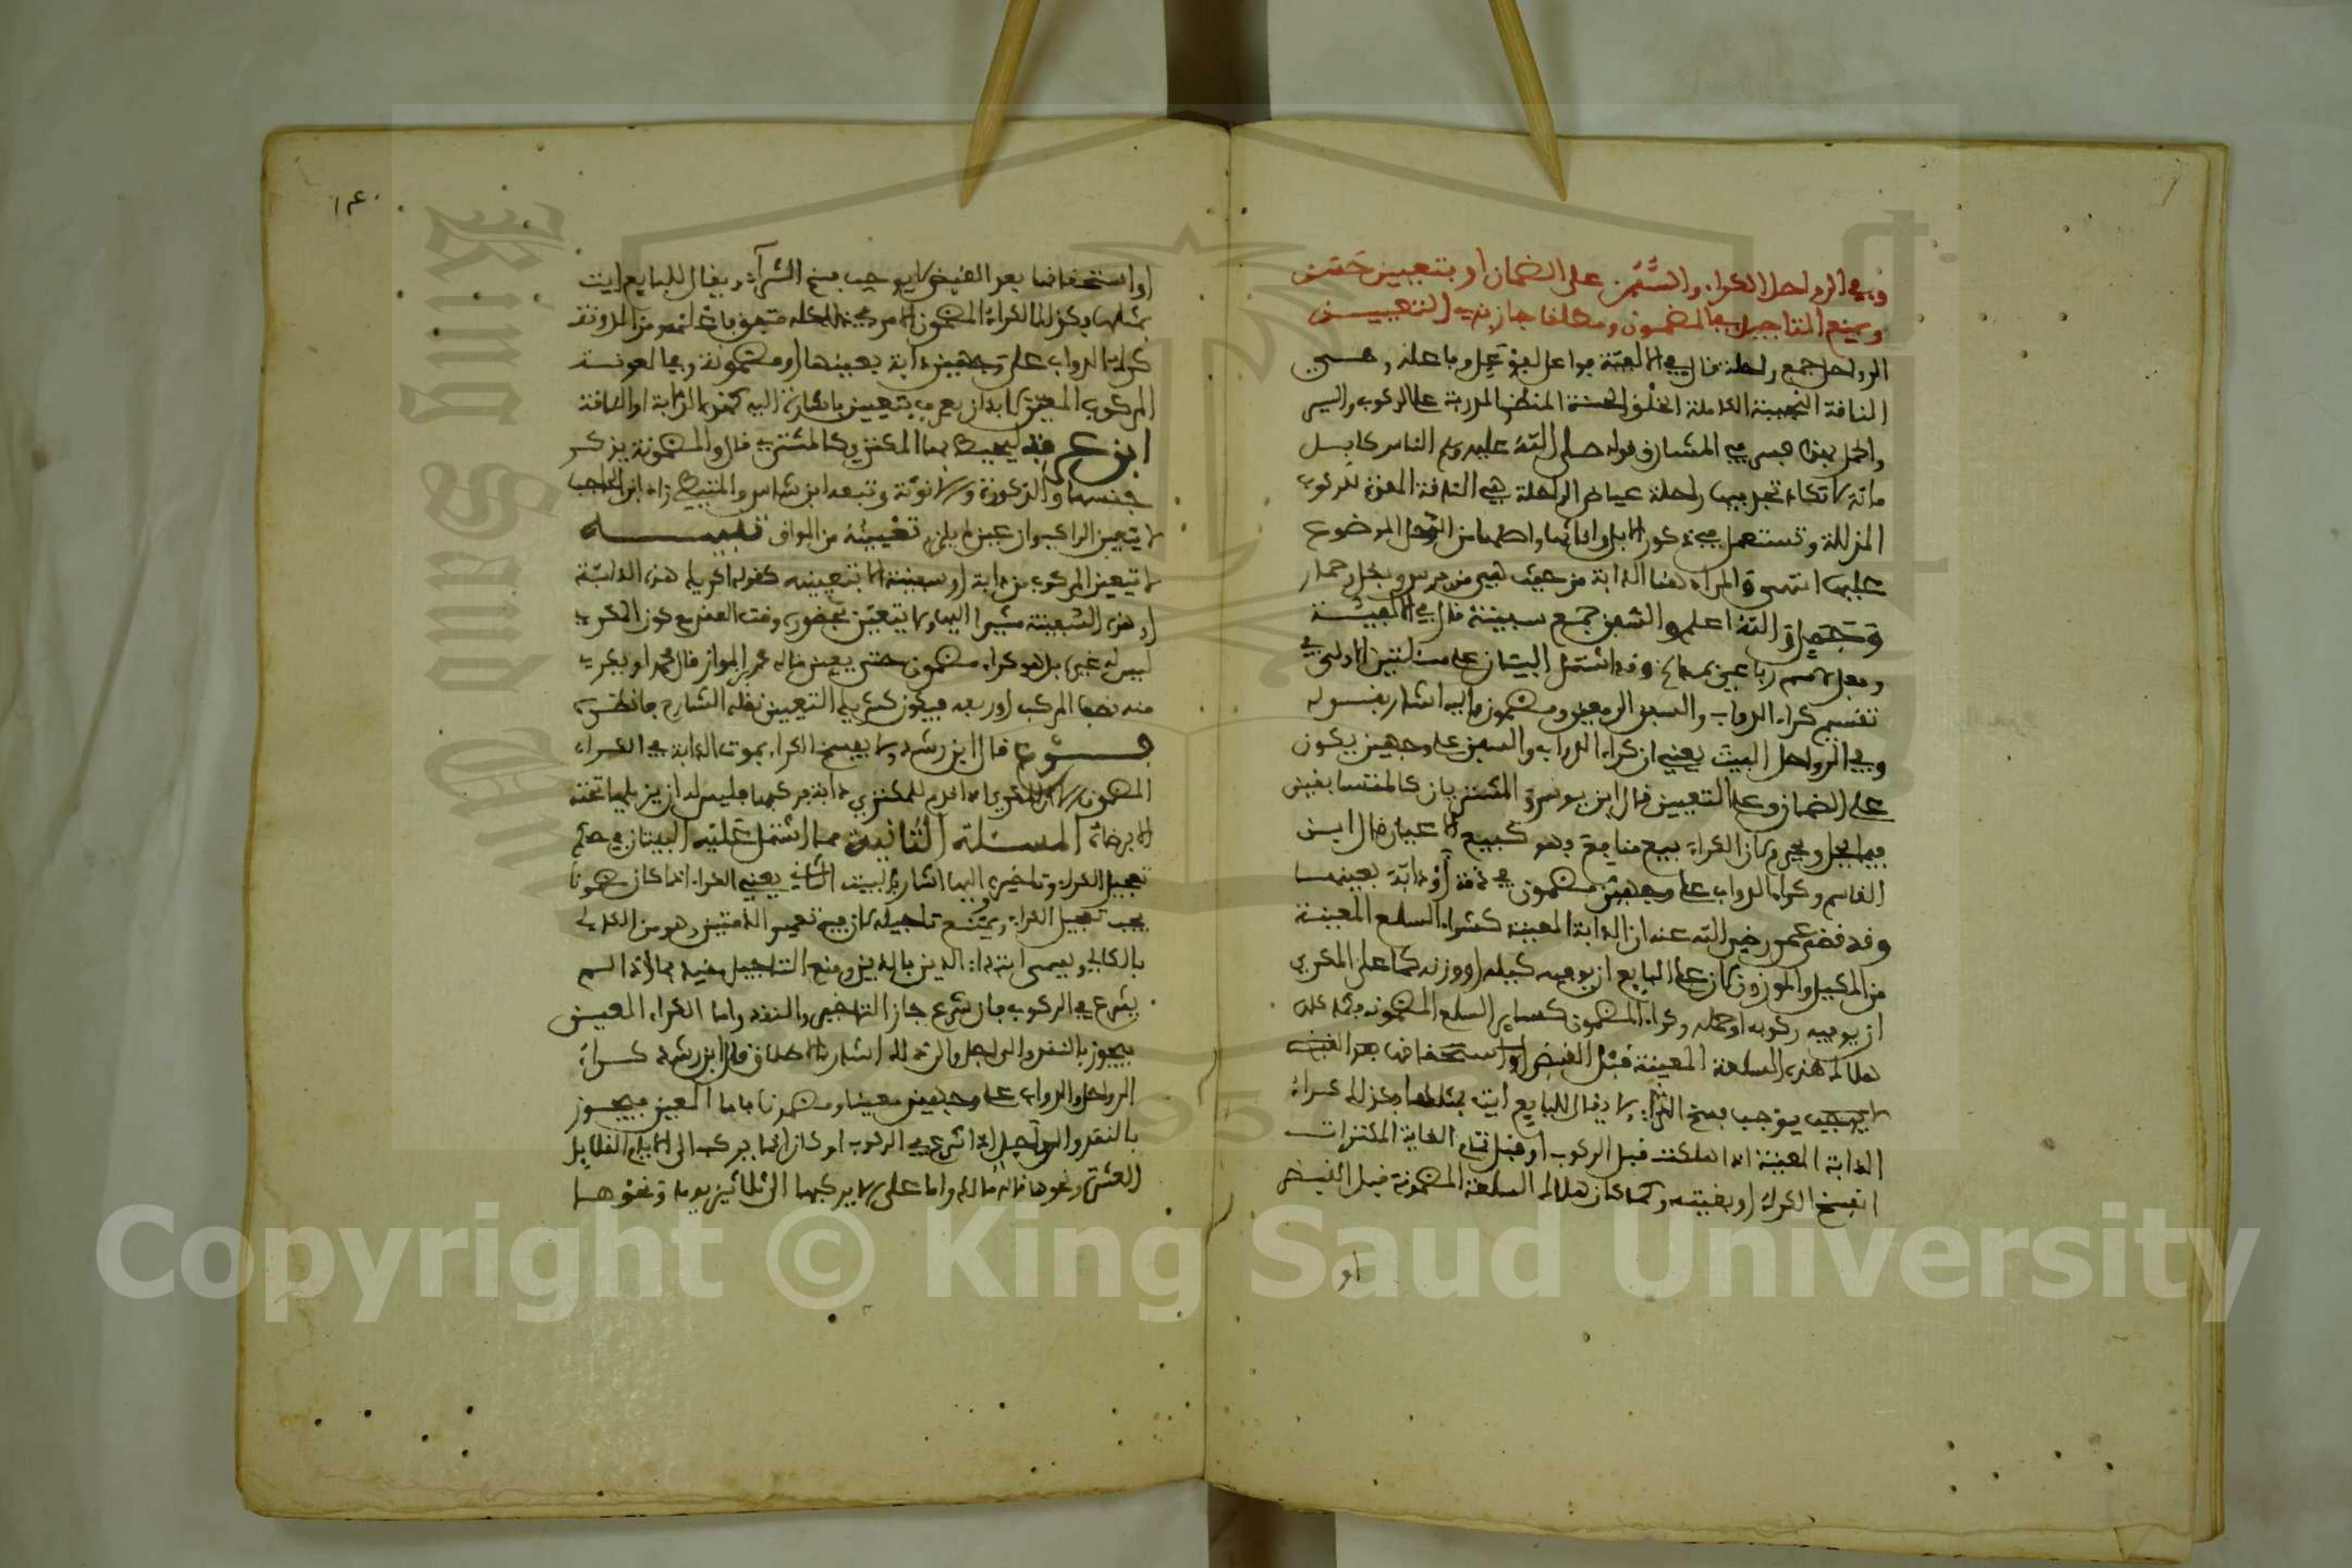 وفي الرواحل الكراء والسفن على الضمان او بتعيين حسن
ويمنع التاجيل في المضمون ومطلقا جاز بذي التعيين
الرواحل جمع راحلة قال في الالفية فواعل لفوعل وفاعل وهي
الناقة النجيبة الكاملة الخلق الحسنة المنظر المدربة على الركوب والسير
والحمل عياض في المشارق قوله صلى الله عليه وسلم الناس كابل
مائة لا تكاد تجد فيها راحلة عياض الراحلة هي الناقة المعدة للركوب
المذللة وتستعمل في ذكور الابل واناثها واصلها من الرحل الموضوع
عليها انتهى والمراد هنا الدابة من حيث هي من فرس وبغل وحمار
وجمل والله اعلم والسفن جمع سفينة قال في الالفية
وفعل لاسم رباعي بمد وقد اشتمل البيتان على مسئلتين الاولى في
تقسيم كراء الدواب والسفن الى معين ومضمون واليه اشار بقوله
وفي الرواحل البيت يعني ان كراء الدواب والسفن على وجهين يكون
على الضمان وعلى التعيين قال ابن يونس والمكتريان كالمتبايعين
فيما يحل ويحرم لان الكراء بيع منافع وهو كبيع الاعيان قال ابن
القاسم وكراء الدواب على وجهين مضمون في ذمة او دابة بعينها
وقد قضى عمر رضي الله عنه ان الدابة المعينة كشراء السلع المعينة
من المكيل والموزون لان على البايع ان يوفيه كيله او وزنه كما على المكري
ان يوفيه ركوبه او حمله وكراء المضمون كساير السلع المضمونة
هلاك هذه السلعة المعينة قبل القبض او استحقاقها بعد القبض
يوجب فسخ الشراء ولا يقال للبايع ايت بمثلها وكذلك كراء
الدابة المعينة اذا هلكت قبل الركوب او قبل تمام الغاية المكترات
انفسخ الكراء او بقيته وكما كان هلاك السلعة المضمونة قبل القبض
او
١٤٠
او استحقاقها بعد القبض لا يوجب فسخ الشراء ويقال للبايع ايت
بمثلها وكذلك الكراء المضمون الامر في ذلك كله متفق باختصار من المدونة
كراء الدواب على وجهين دابة بعينها او مضمونة وفي المعونة
المركوب المعين لا بد ان يعرف بتعيين باشارة اليه كهذه الدابة او الناقة
ابن عرفة ليحيط بها المكتري كالمشتري قال والمضمونة يذكر
جنسها والذكورة والانوثة وتبعه ابن شاس والمتيطي زاد ابن الحاجب
لا يتعين الراكب وان عين لم يلزم تعيينه من المواق تنبيه
لا يتعين المركوب من دابة او سفينة الا بتعيينه كقوله اكر لي هذه الدابة
او هذه السفينة مشيرا اليها ولا يتعين بحضوره وقت العقد مع كون المكري
ليس له غيره بل هو كراء مضمون حتى يعين قاله محمد ابن المواز قال محمد او يكري
منه نصف المركب او ربعه فيكون كشرط التعيين نقله الشارح فانظره
فروع قال ابن رشد ولا يفسخ الكراء بموت الدابة في الكراء
المضمون الا ان المكري اذا قدم للمكتري دابة فركبها فليس له ان يزيلها تحته
الا برضاه المسئلة الثانية مما اشتمل عليه البيتان في حكم
تعجيل الكراء وتاخيره واليها اشار بالبيت الثاني يعني الكراء اذا كان مضمونا
يجب تعجيل الكراء ويمتنع تاجيله لان فيه تعمير الذمتين وهو من الكالي
بالكالي ويسمى ابتداء الدين بالدين ومنع التاجيل مقيد بما اذا لم
يشرع في الركوب فان شرع جاز التاخير والنقد واما الكراء المعين
فيجوز بالنقد والى اجل والى ذلك اشار بالاطلاق قال ابن رشد كراء
الرواحل والدواب على وجهين معينا ومضمونا فاما المعين فيجوز
بالنقد والى اجل اذا شرع في الركوب او كان انما يركب الى الايام القلايل
العشرة ونحوها قاله مالك واما على ان لا يركبها الا الى ثلاثين يوما ونحوها
Copyright © King Saud University